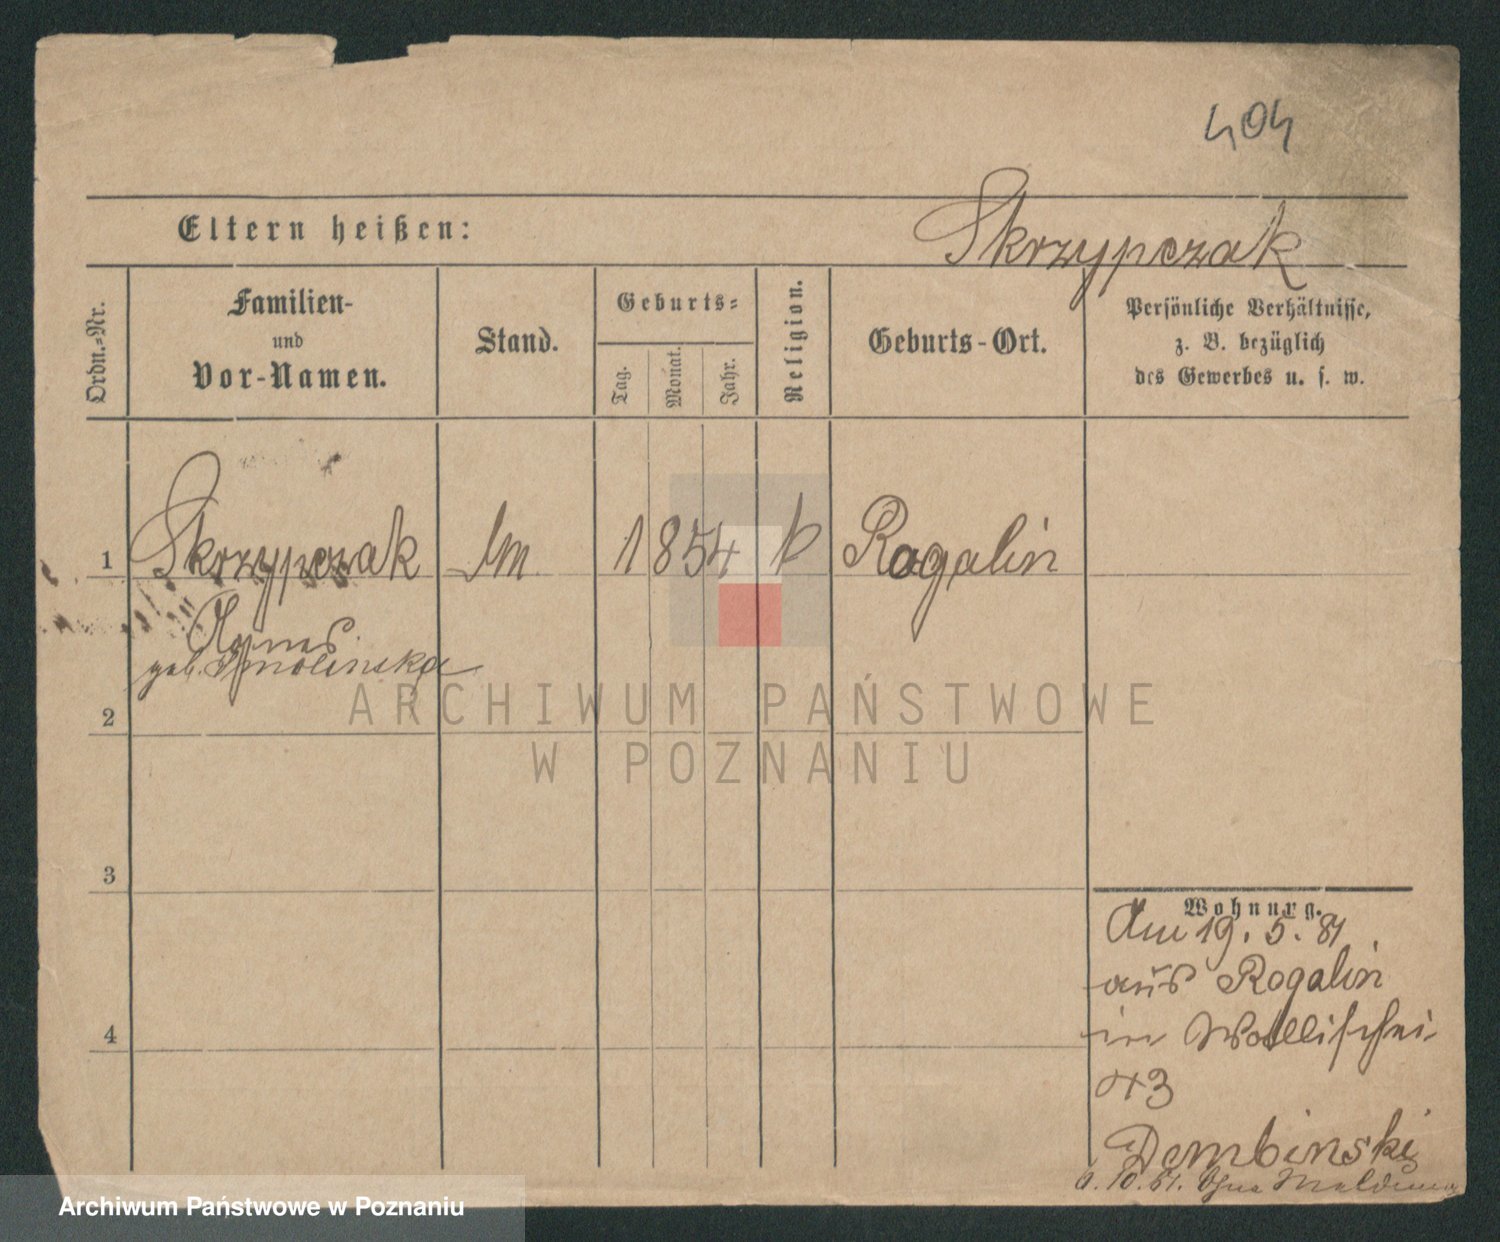 404
Skrzypczak
Eltern heißen:
Ordn.-Nr.
Familien-
und
Vor-Namen.
Stand.
Geburts-
Tag.
Monat.
Jahr.
Religion.
Geburts-Ort.
Persönliche Verhältnisse,
z. B. bezüglich
des Gewerbes u. s. w.
1 Skrzypczak 1854 k Rogalin
Agnes
geb. Smolinska
2
3
4
Wohnung.
Am 19. 5. 81
aus Rogalin
in Wallischei
43
Dembinski
10. 81. Ohne Meldung
ARCHIWUM PAŃSTWOWE
W POZNANIU
Archiwum Państwowe w Poznaniu